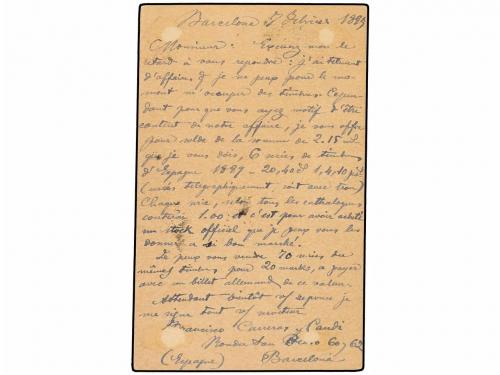 Barcelone 7 Février 1899
Monsieur: Excusez moi le
retard à vous repondre: j'ai tellement
d'affaires & je ne peux pour le mo-
ment m'occuper des timbres. Cepen-
dant pour que vous ayez motif d'être
content de notre affaire, je vous offre
pour solde de la somme de 2.15
que je vous dois, 6 séries de timbres
d'Espagne 1879 - 20, 40 1, 4, 10
(usés telegraphiquement, soit avec trou)
Chaque série, selon tous les cathalogues
coûterai 1.00: c'est pour avoir acheté
un stock officiel que je peux vous les
donner a si bon marché.
Je peux vous vendre 70 séries des
mêmes timbres pour 20 marks, a payer
avec un billet allemand de ce valeur
Attendant bientôt v/ reponse je
me signe tout v/ serviteur
Francisco Carreras y Candi
Ronda San 60 y 62
(Espagne) Barcelona